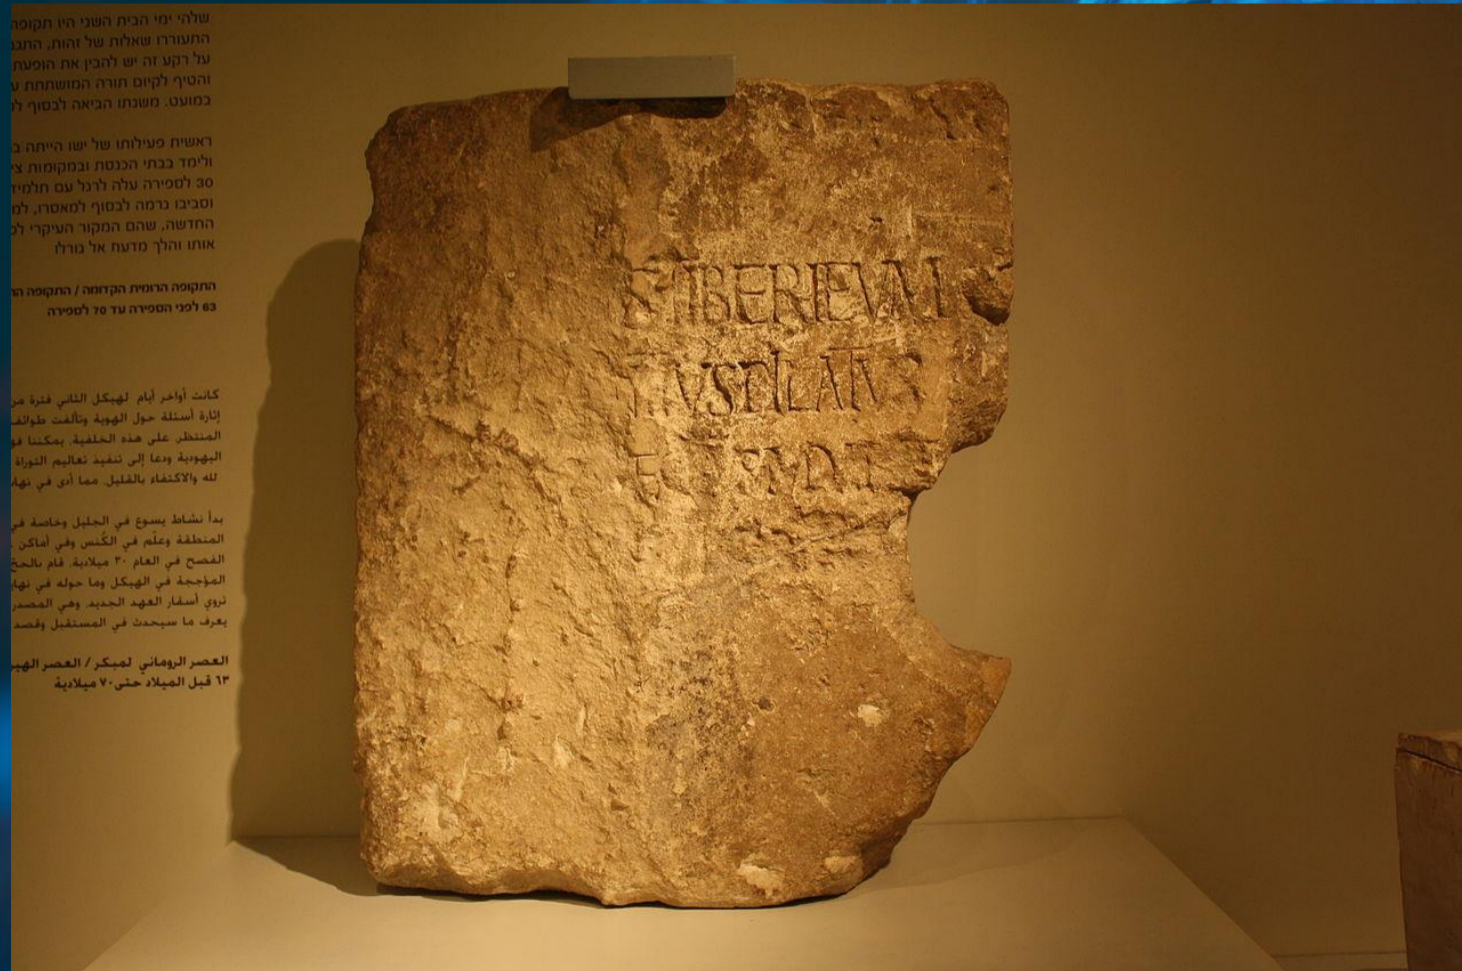 שלהי ימי הבית השני היו תקופת
התעוררו שאלות של זהות,
על רקע זה יש להבין את הופעת
והטיף לקיום תורה המושתתת
במועט. משנתו הביאה לבסוף
ראשית פעילותו של ישו הייתה
ולימד בבתי הכנסת ובמקומות
30 לספירה עלה לרגל עם
וסביבו גרמה לבסוף למאסרו,
החדשה, שהם המקור העיקרי
אותו והלך מדעת אל גורלו
התקופה הרומית הקדומה / התקופה
63 לפני הספירה עד 70 לספירה
كانت أواخر أيام لهيكل الثاني فترة
إثارة أسئلة حول الهوية وتألفت
المنتظر. على هذه الخلفية، يمكننا
اليهودية ودعا إلى تنفيذ تعاليم التوراة
لله والاكتفاء بالقليل. مما أدى في
بدأ نشاط يسوع في الجليل وخاصة في
المنطقة وعلّم في الكُنس وفي أماكن
الفصح في العام ٣٠ ميلادية، قام
المؤججة في الهيكل وما حوله في
تروي أسفار العهد الجديد، وهي المصدر
يعرف ما سيحدث في المستقبل وقصد
العصر الروماني لمبكر / العصر
٦٣ قبل الميلاد حتى ٧٠ ميلادية
S TIBERIEVM
TIVS PILATVS